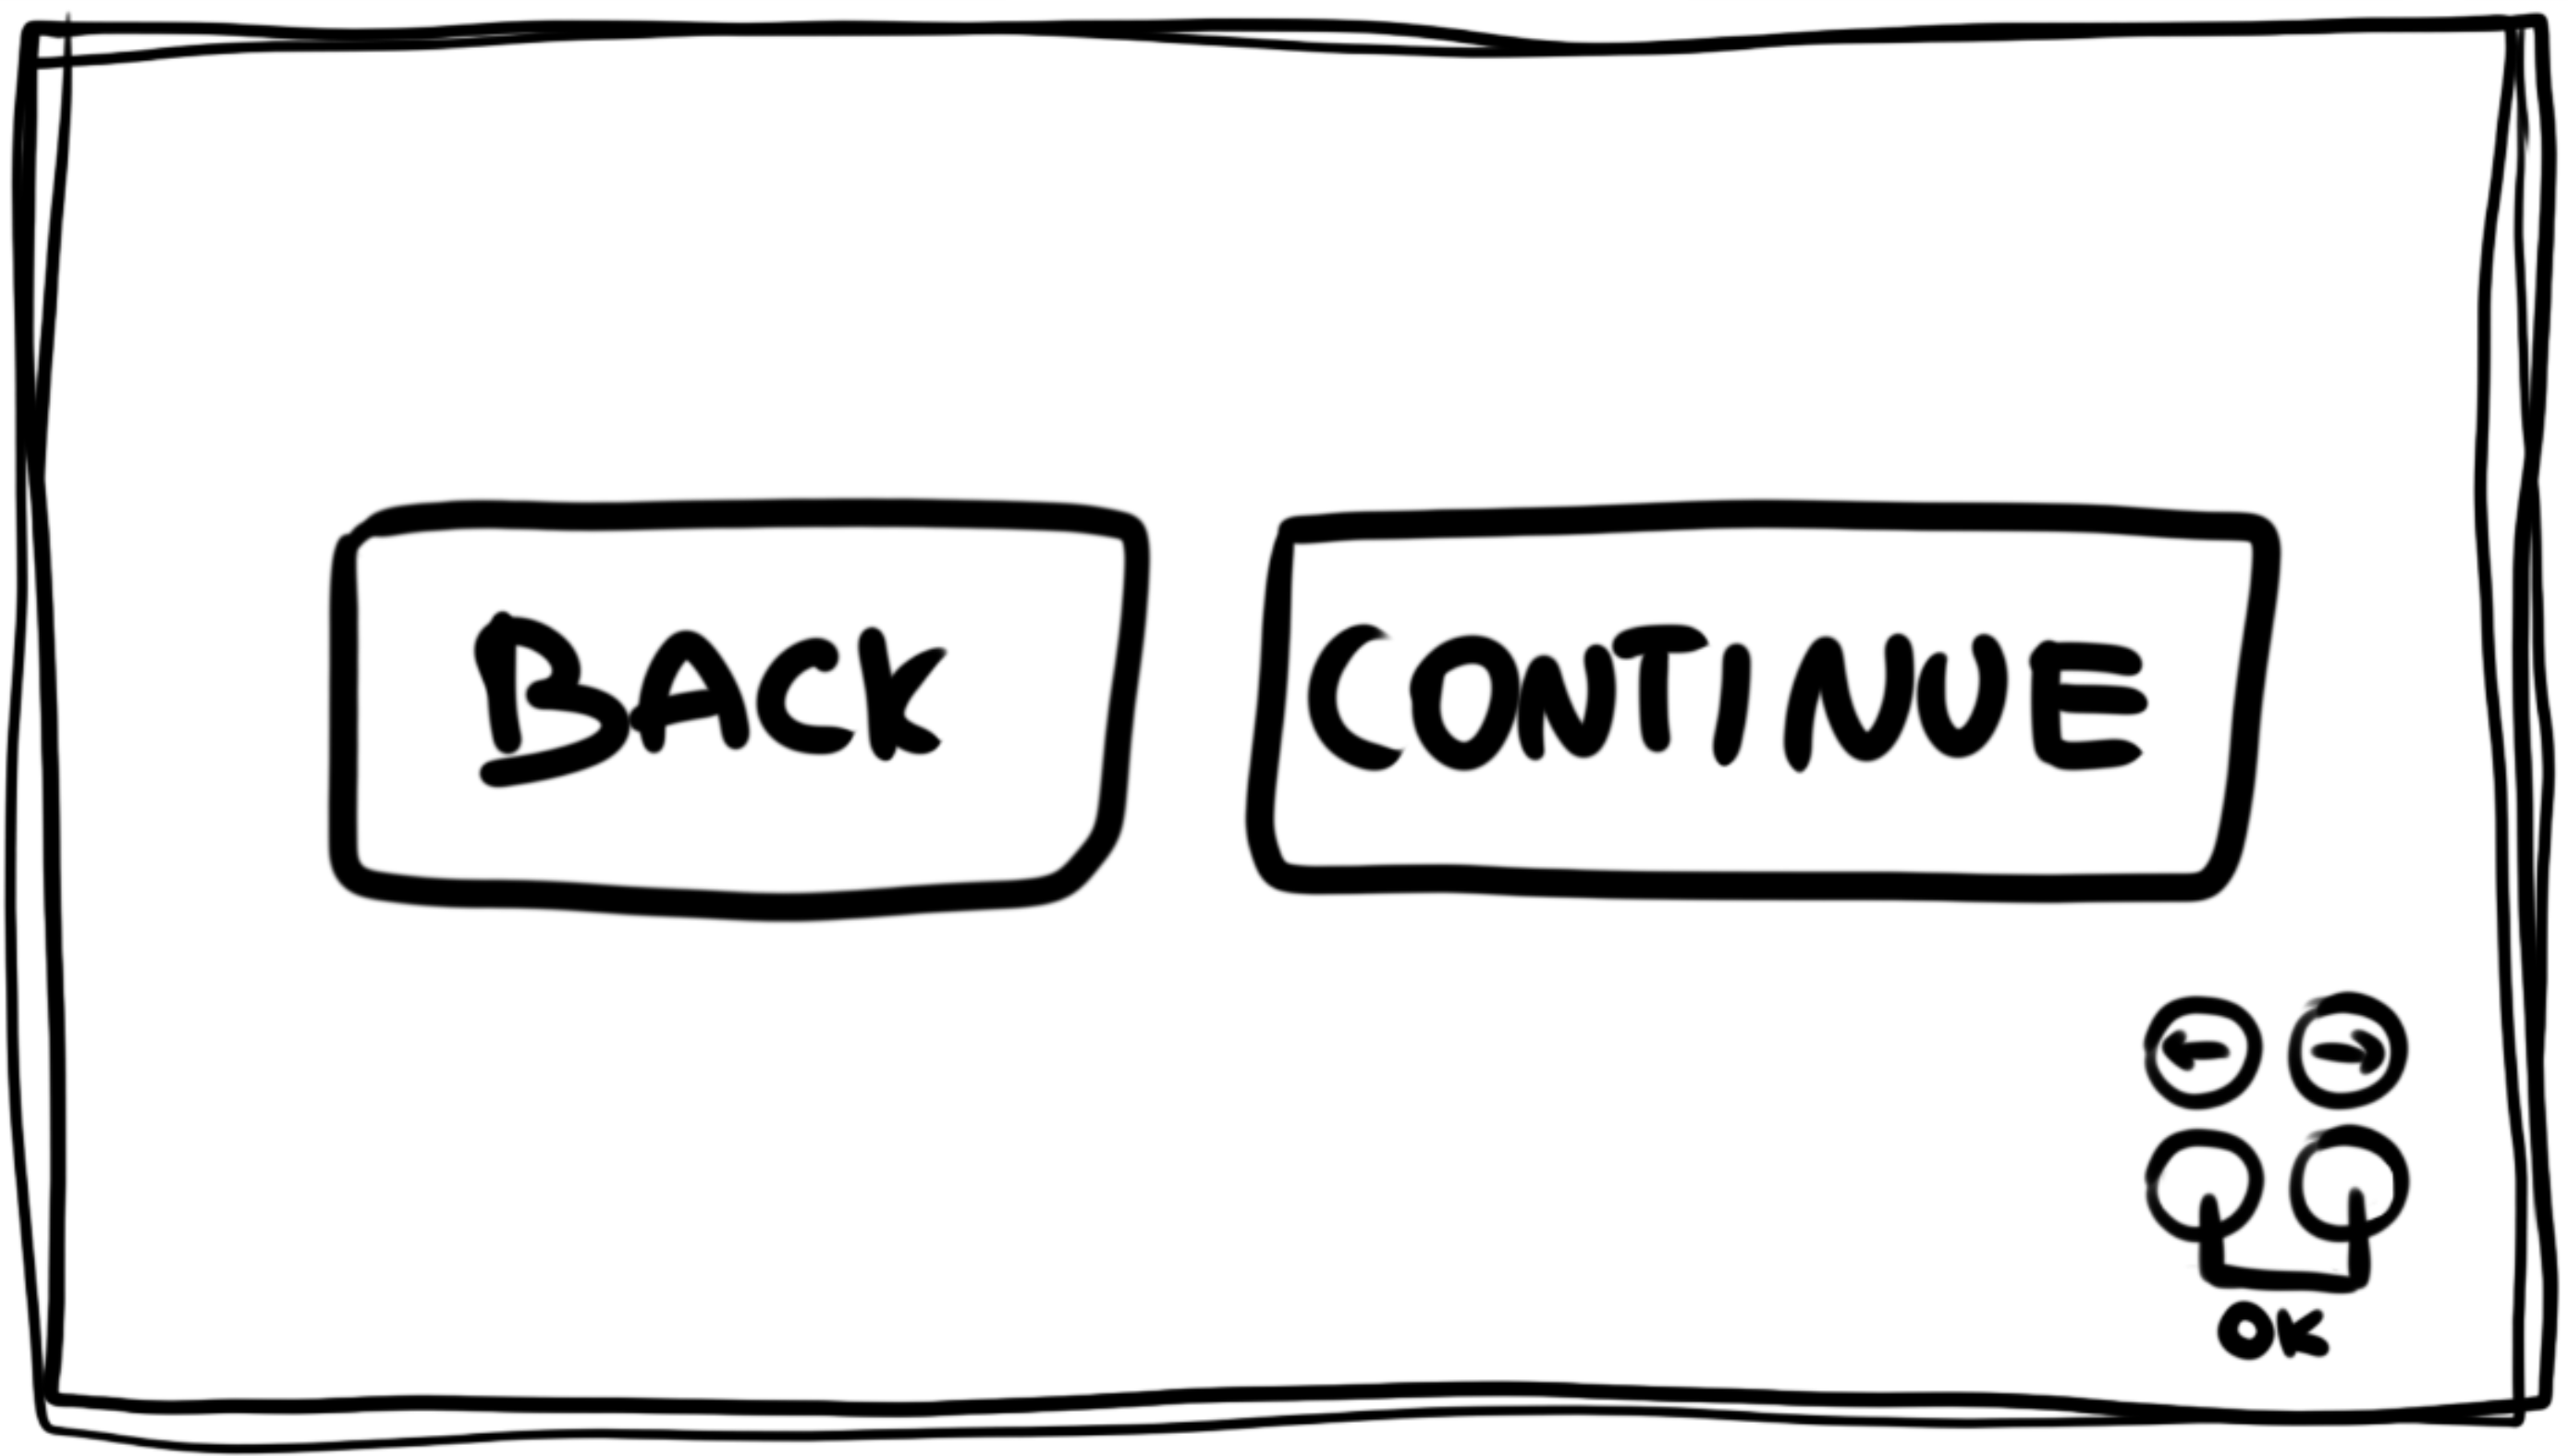 BACK
CONTINUE
← →
OK